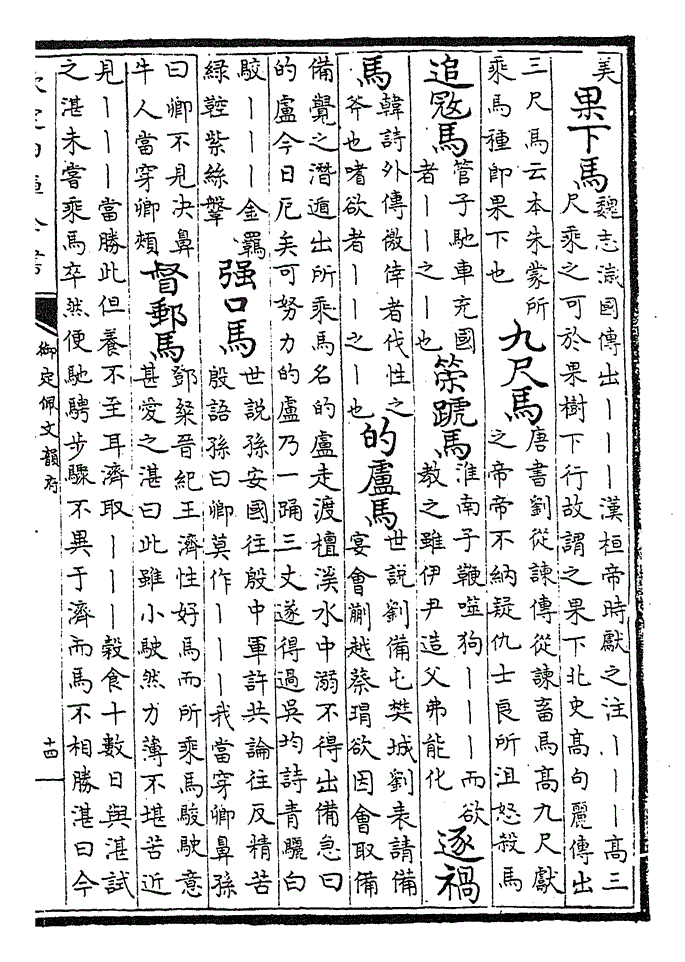 美
果下馬
魏志濊國傳出丨丨丨漢桓帝時獻之注丨丨丨高三
尺乘之可於果樹下行故謂之果下北史高句麗傳出
三尺馬云本朱蒙所
乘馬種即果下也
九尺馬
唐書劉從諫傳從諫畜馬高九尺獻
之帝帝不納疑仇士良所沮怒殺馬
追寇馬
管子馳車充國
者丨丨之丨也
策蹏馬
淮南子鞭噬狗丨丨丨而欲
教之雖伊尹造父弗能化
逐禍
馬
韓詩外傳徼倖者伐性之
斧也嗜欲者丨丨之丨也
的盧馬
世說劉備屯樊城劉表請備
宴會蒯越蔡瑁欲因會取備
備覺之潛遁出所乘馬名的盧走渡檀溪水中溺不得出備急曰
的盧今日厄矣可努力的盧乃一踊三丈遂得過吳均詩青驪白
駮丨丨丨金羈
綠鞚紫絲鞶
强口馬
世說孫安國往殷中軍許共論往反精苦
殷語孫曰卿莫作丨丨丨我當穿卿鼻孫
曰卿不見決鼻
牛人當穿卿頰
督郵馬
鄧粲晉紀王濟性好馬而所乘馬駿駛意
甚愛之湛曰此雖小駛然力薄不堪苦近
見丨丨丨當勝此但養不至耳濟取丨丨丨穀食十數日與湛試
之湛未嘗乘馬卒然便馳騁步驟不異于濟而馬不相勝湛曰今
欽定四庫全書
御定佩文韻府
十四